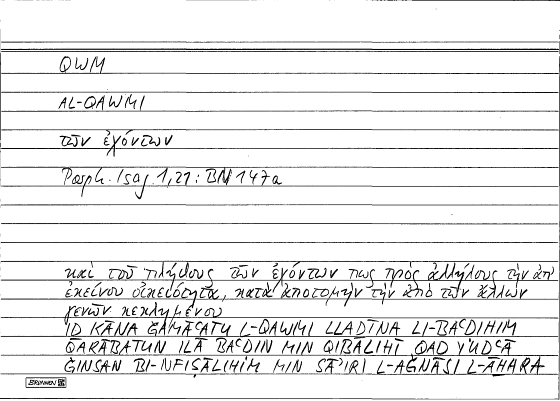 QWM
AL-QAWMI
τῶν ἐχόντων
Porph. Isag. 1,21: BN 147a
καὶ τοῦ πλήθους τῶν ἐχόντων πως πρὸς ἀλλήλους τὴν ἀπ'
ἐκείνου οἰκειότητα, κατὰ ἀποτομὴν τὴν ἀπὸ τῶν ἄλλων
γενῶν κεκλημένου
IḎ KĀNA ǦAMĀʿATU L-QAWMI LLAḎĪNA LI-BAʿḌIHIM
QARĀBATUN ILĀ BAʿḌIN MIN QIBALIHĪ QAD YUDʿĀ
ǦINSAN BI-NFIṢĀLIHIM MIN SĀʾIRI L-AǦNĀSI L-ĀḪARA
BRUNNEN